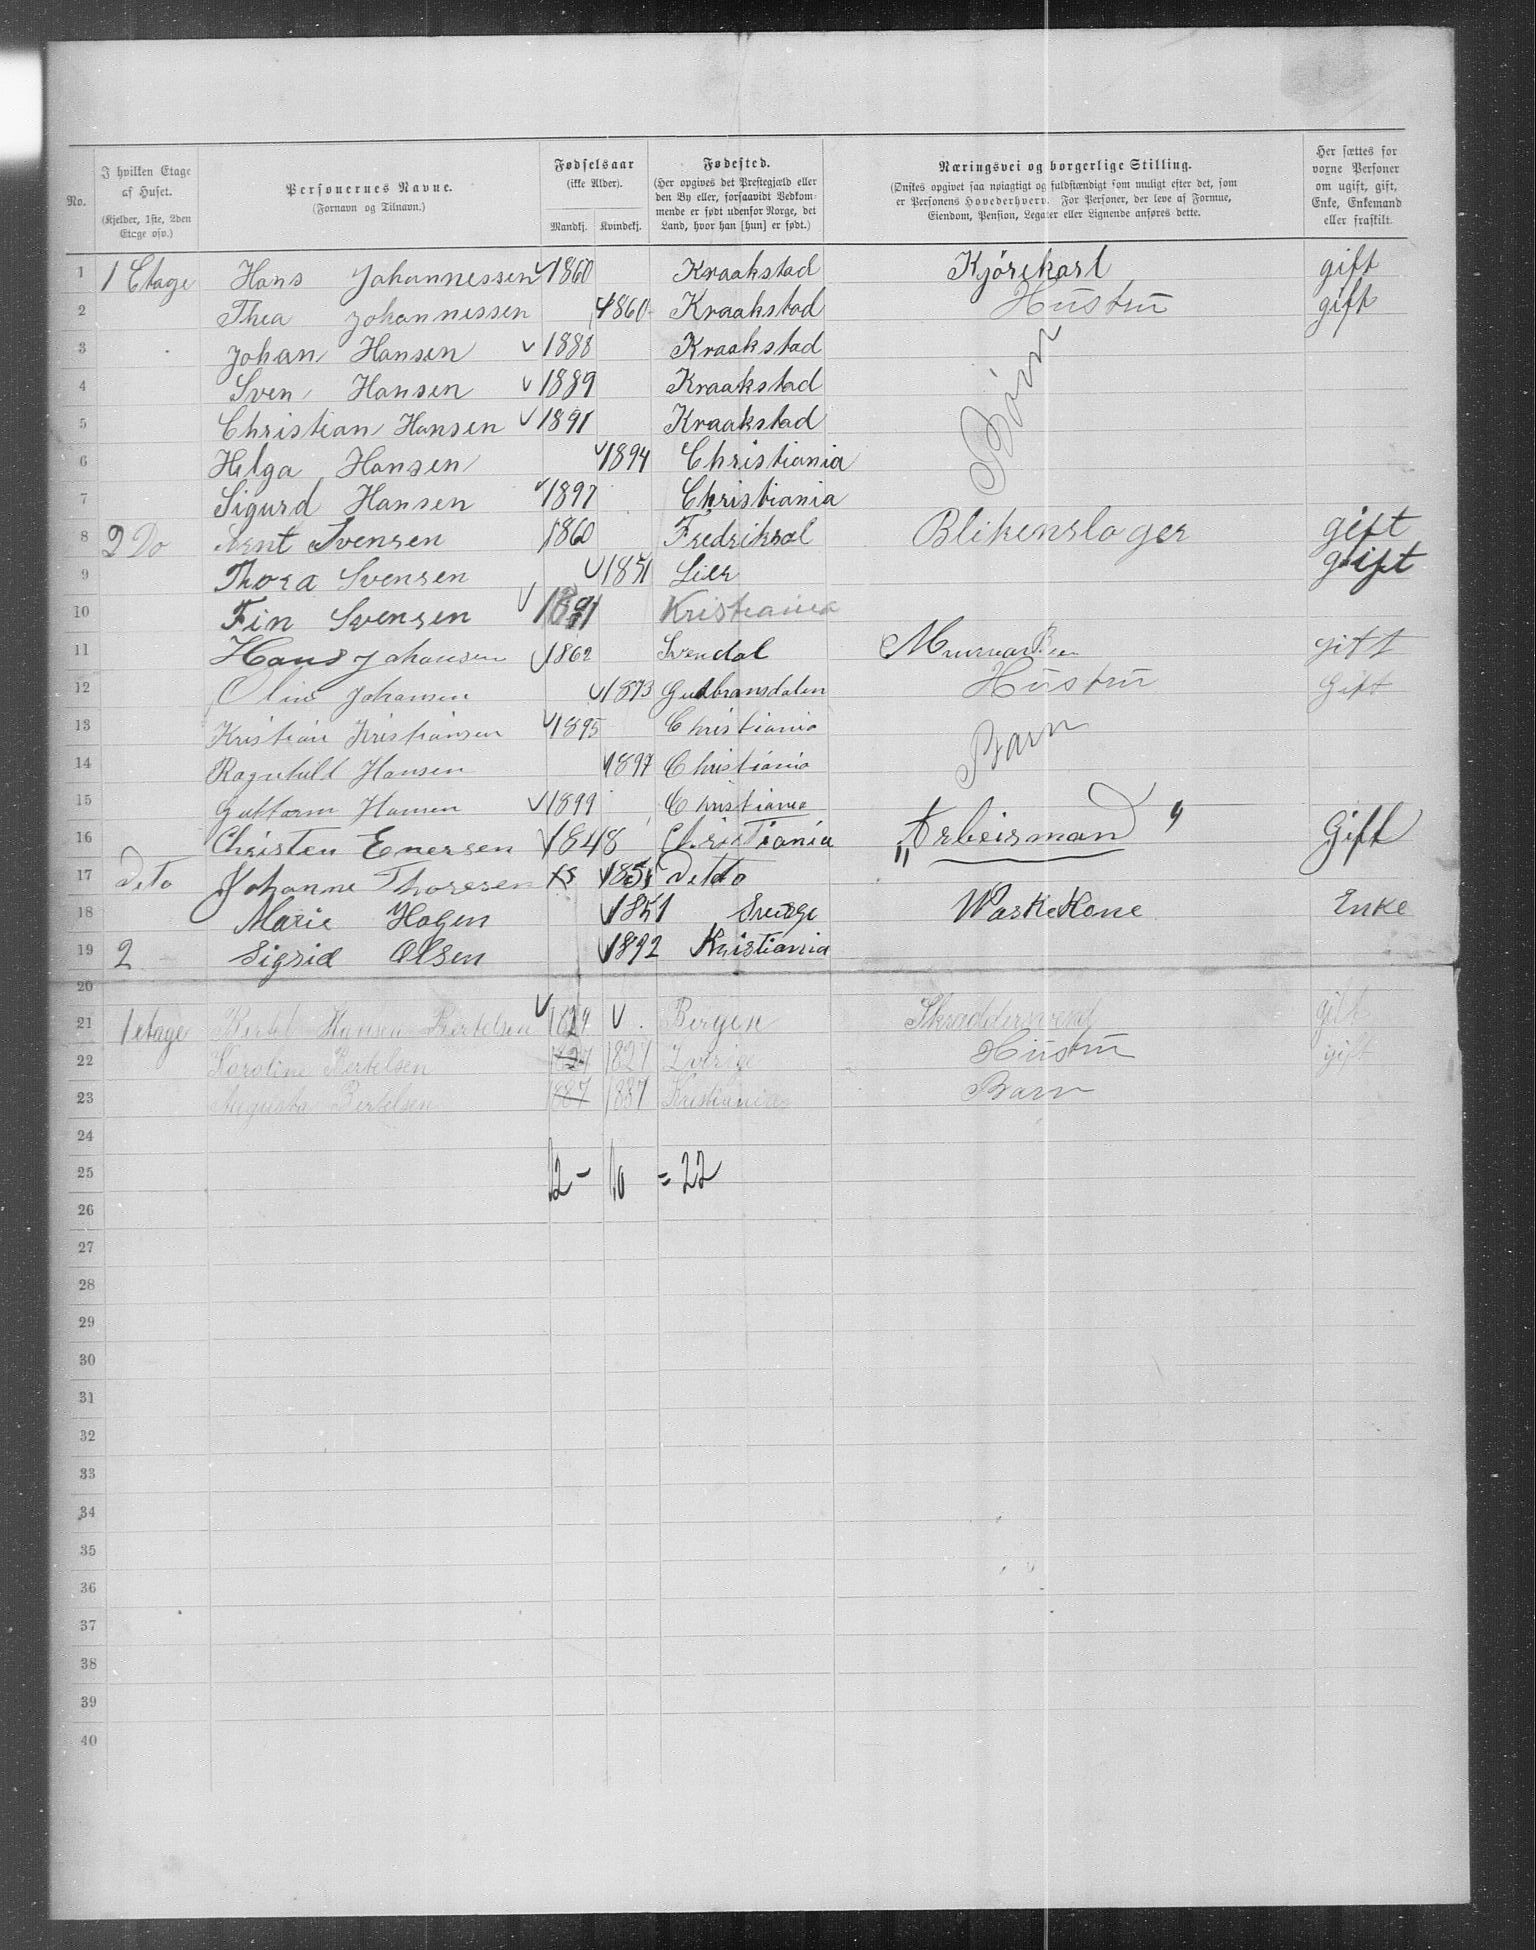 No. I hvilken Etage af Huset. (Kjelder, 1ste, 2den Etage osv.) Personernes Navne. (Fornavn og Tilnavn.) Fødselsaar (ikke Alder). Mandkj. Kvindekj. Fødested. (Her opgives det Prestegjæld eller den By eller, forsaavidt Vedkommende er født udenfor Norge, det Land, hvor han [hun] er født.) Næringsvei og borgerlige Stilling. (Ønskes opgivet saa nøiagtigt og fuldstændigt som muligt efter det, som er Personens Hovederhverv. For Personer, der leve af Formue, Eiendom, Pension, Legater eller Lignende anføres dette. Her sættes for voxne Personer om ugift, gift, Enke, Enkemand eller fraskilt.
1 1 Etage Hans Johannessen 1860 Kraakstad Kjørekarl gift
2 Thea Johannessen 1860 Kraakstad Hustru gift
3 Johan Hansen 1888 Kraakstad Børn
4 Sven Hansen 1889 Kraakstad
5 Christian Hansen 1891 Kraakstad
6 Helga Hansen 1894 Christiania
7 Sigurd Hansen 1897 Christiania
8 2 Do Arnt Svensen 1860 Blikenslager gift
9 Thora Svensen 1851 Lier gift
10 Fin Svensen 1891 Kristiania
11 Hans Johansen 1862 gift
12 Oline Johansen 1873 Gudbransdalen Hustru Gift
13 Kristian Kristiansen 1895 Christiania Barn
14 Ragnhild Hansen 1897 Christiania
15 Guttorm Hansen 1899 Christiania
16 Christen Enersen 1848 Christiania Arbeisman Gift
17 Deto Johanne Thoresen 1851 Detto
18 Marie Hagen 1851 Sverge Waskekone Enke
19 2 Sigrid Olsen 1892 Kristiania
20
21 1 etage Bertel Hansen Bertelsen 1829 Bergen Skræddersvend gift
22 Karoline Bertelsen 1827 1827 Sverige Hustru gift
23 Augusta Bertelsen 1887 1887 Kristiania Barn
24
25 12 - 10 = 22
26
27
28
29
30
31
32
33
34
35
36
37
38
39
40